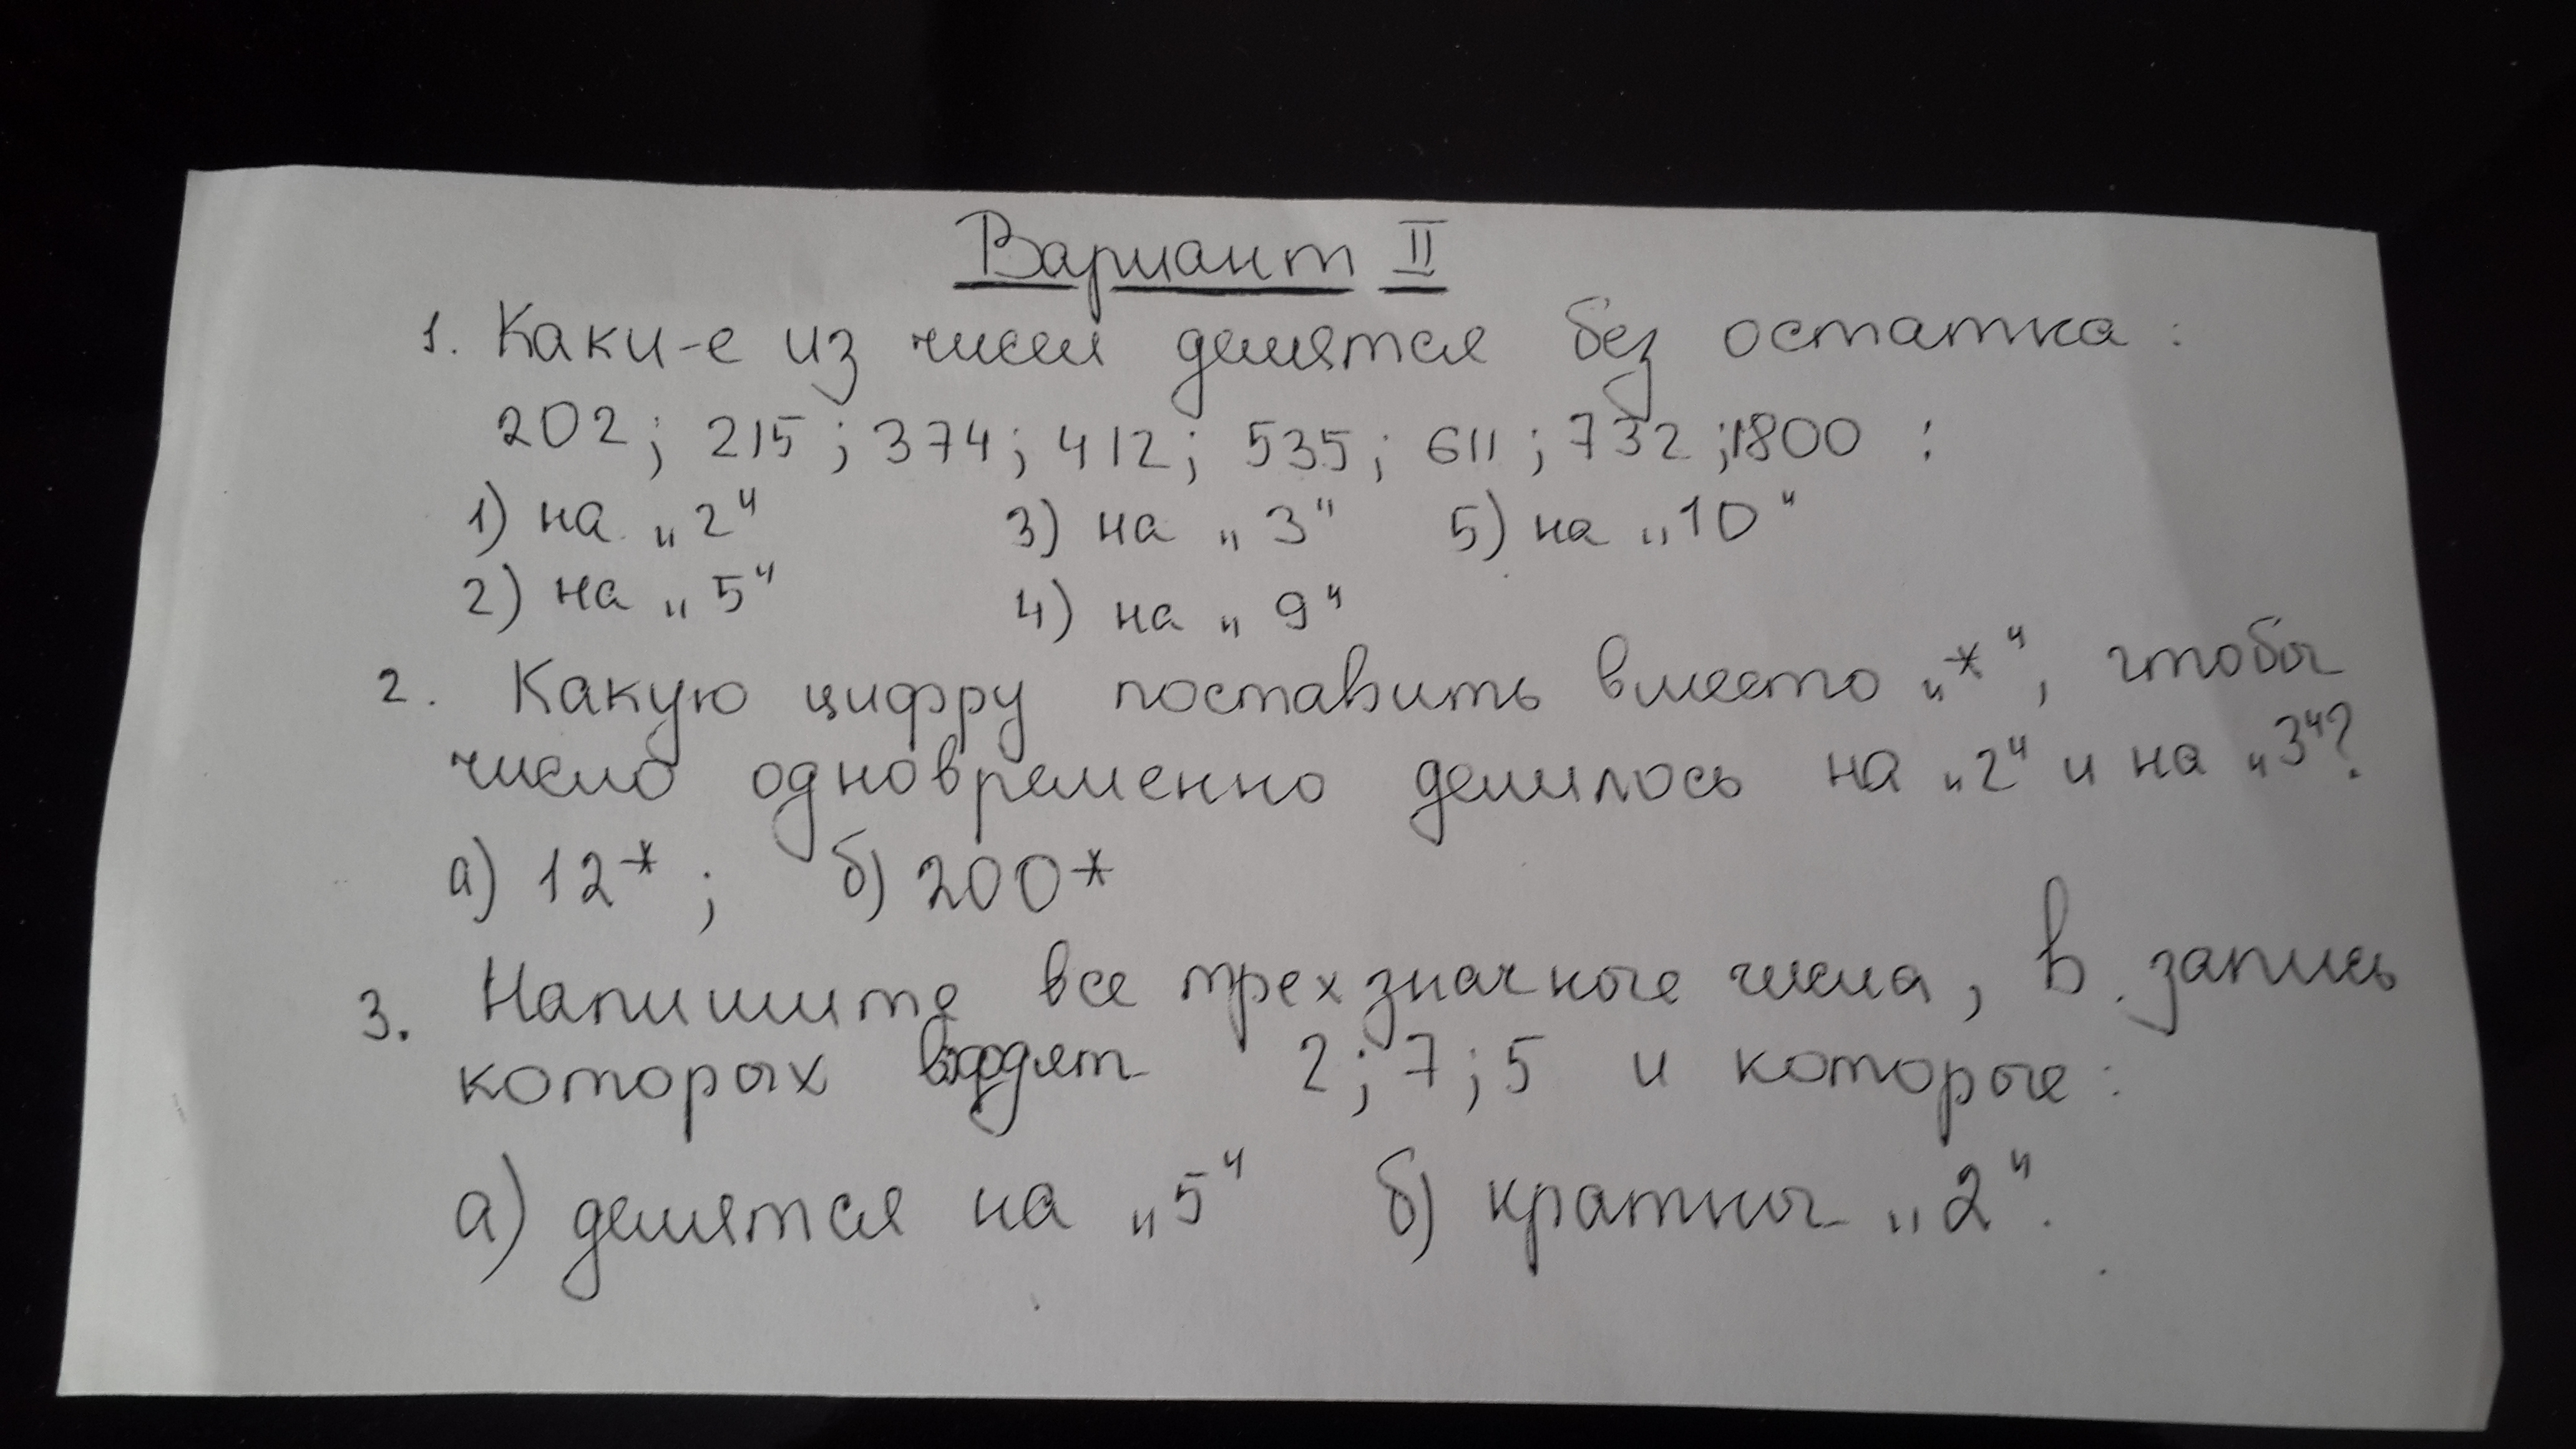 Вариант II
1. Каки-е из чисел делятся без остатка:
202; 215; 374; 412; 535; 611; 732; 1800 :
1) на „2“ 3) на „3“ 5) на „10“
2) на „5“ 4) на „9“
2. Какую цифру поставить вместо „*“, чтобы
число одновременно делилось на „2“ и на „3“?
а) 12*; б) 200*
3. Напишите все трехзначные числа, в запись
которых входят 2; 7; 5 и которые:
а) делятся на „5“ б) кратны „2“.